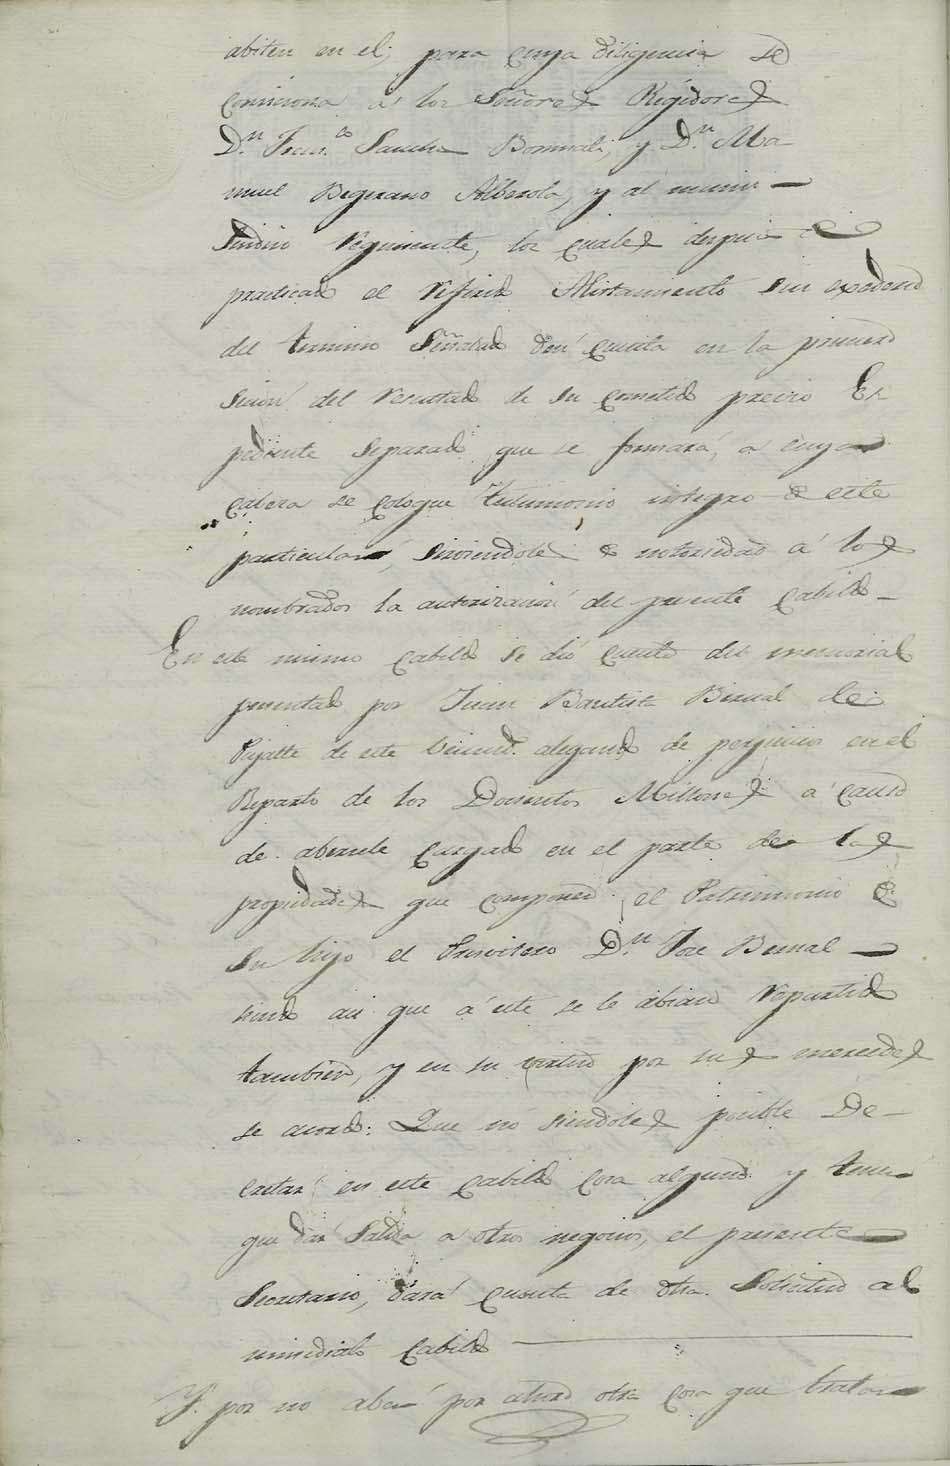 abiten en el; para cuya diligencia se
comiciona á los Señores Regidores
D.n Fran.co Sanchez y D.n Ma-
nuel Begerano y al mismo
Sindico Regimente, los cuales despues de
practicado el referido Alistamiento sin exederse
del termino Señalado den cuenta en la primera
Secion del Resultado de su cometido previo Es
pediente Separado que se formará, a cuya
cabeza se coloque testimonio integro de este
particular, sirviendole de notoriedad á los
nombrados la autorizacion del presente Cabildo
En este mismo Cabildo se dió cuenta del memorial
presentado por Juan Bautista Bernal de
de este Vecind.o alegando de perjuicios en el
Reparto de los Docientos Millones á causa
de aberrele cargado en el parte de las
propiedades que componen el Patrimonio de
Su hijo el Presvitero D.n Jose Bernal
siendo asi que á este se le abian Repartido
tambien, y en su virtud por sus mercedes
se acordó: Que no siendoles posible De-
cretar en este Cabildo cosa alguna y tener
que dar Salida a otros negocios, el presente
Secretario, dará cuenta de dha. Solicitud al
inmediato Cabildo
Y por no aber por ahora otra cosa que tratar